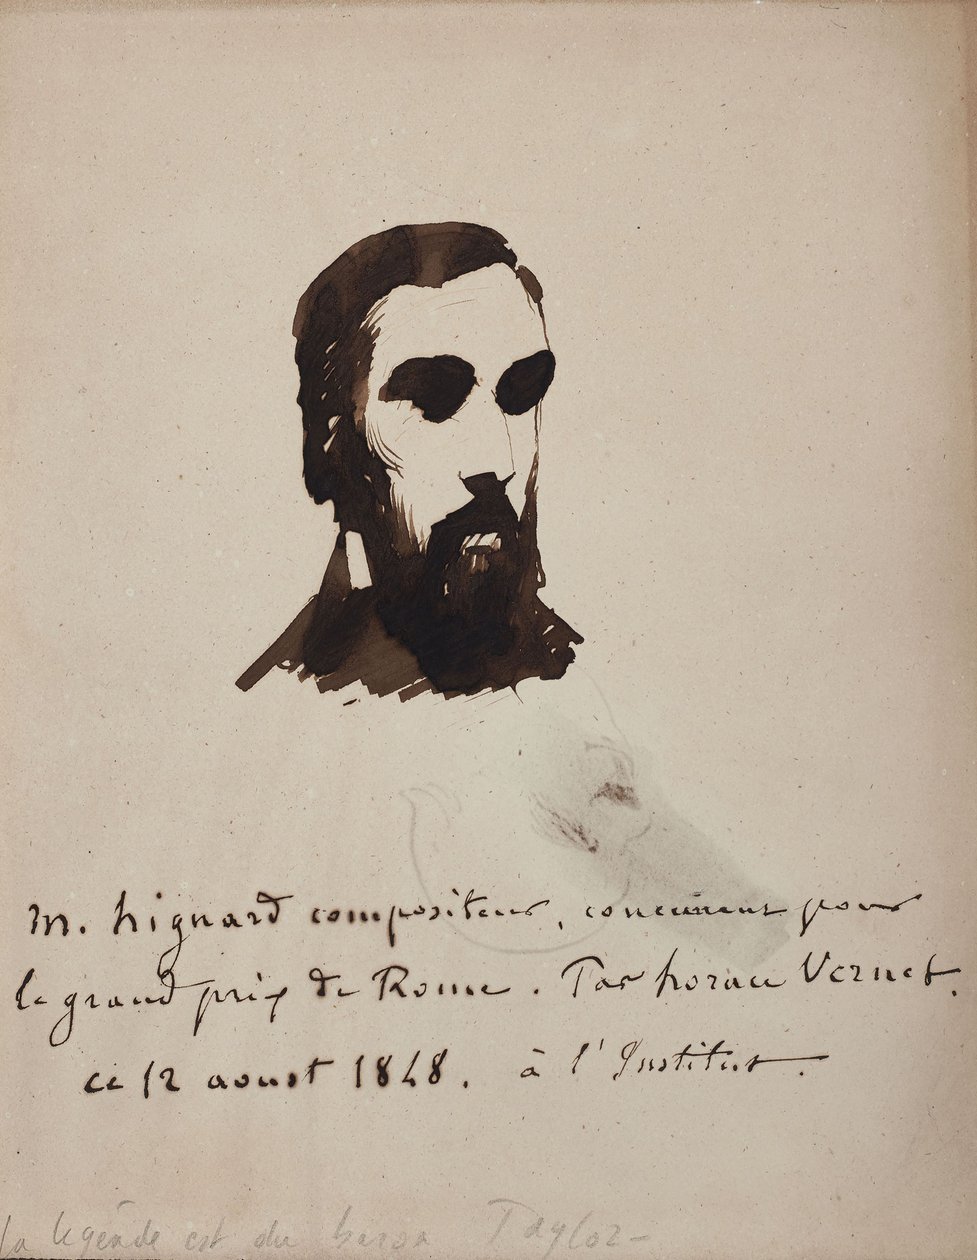 M. hignard compositeur, concurrent pour
le grand prix de Rome. Par horace Vernet.
ce 12 aoust 1848. à l'Institut.
la légende est du baron Taylor-